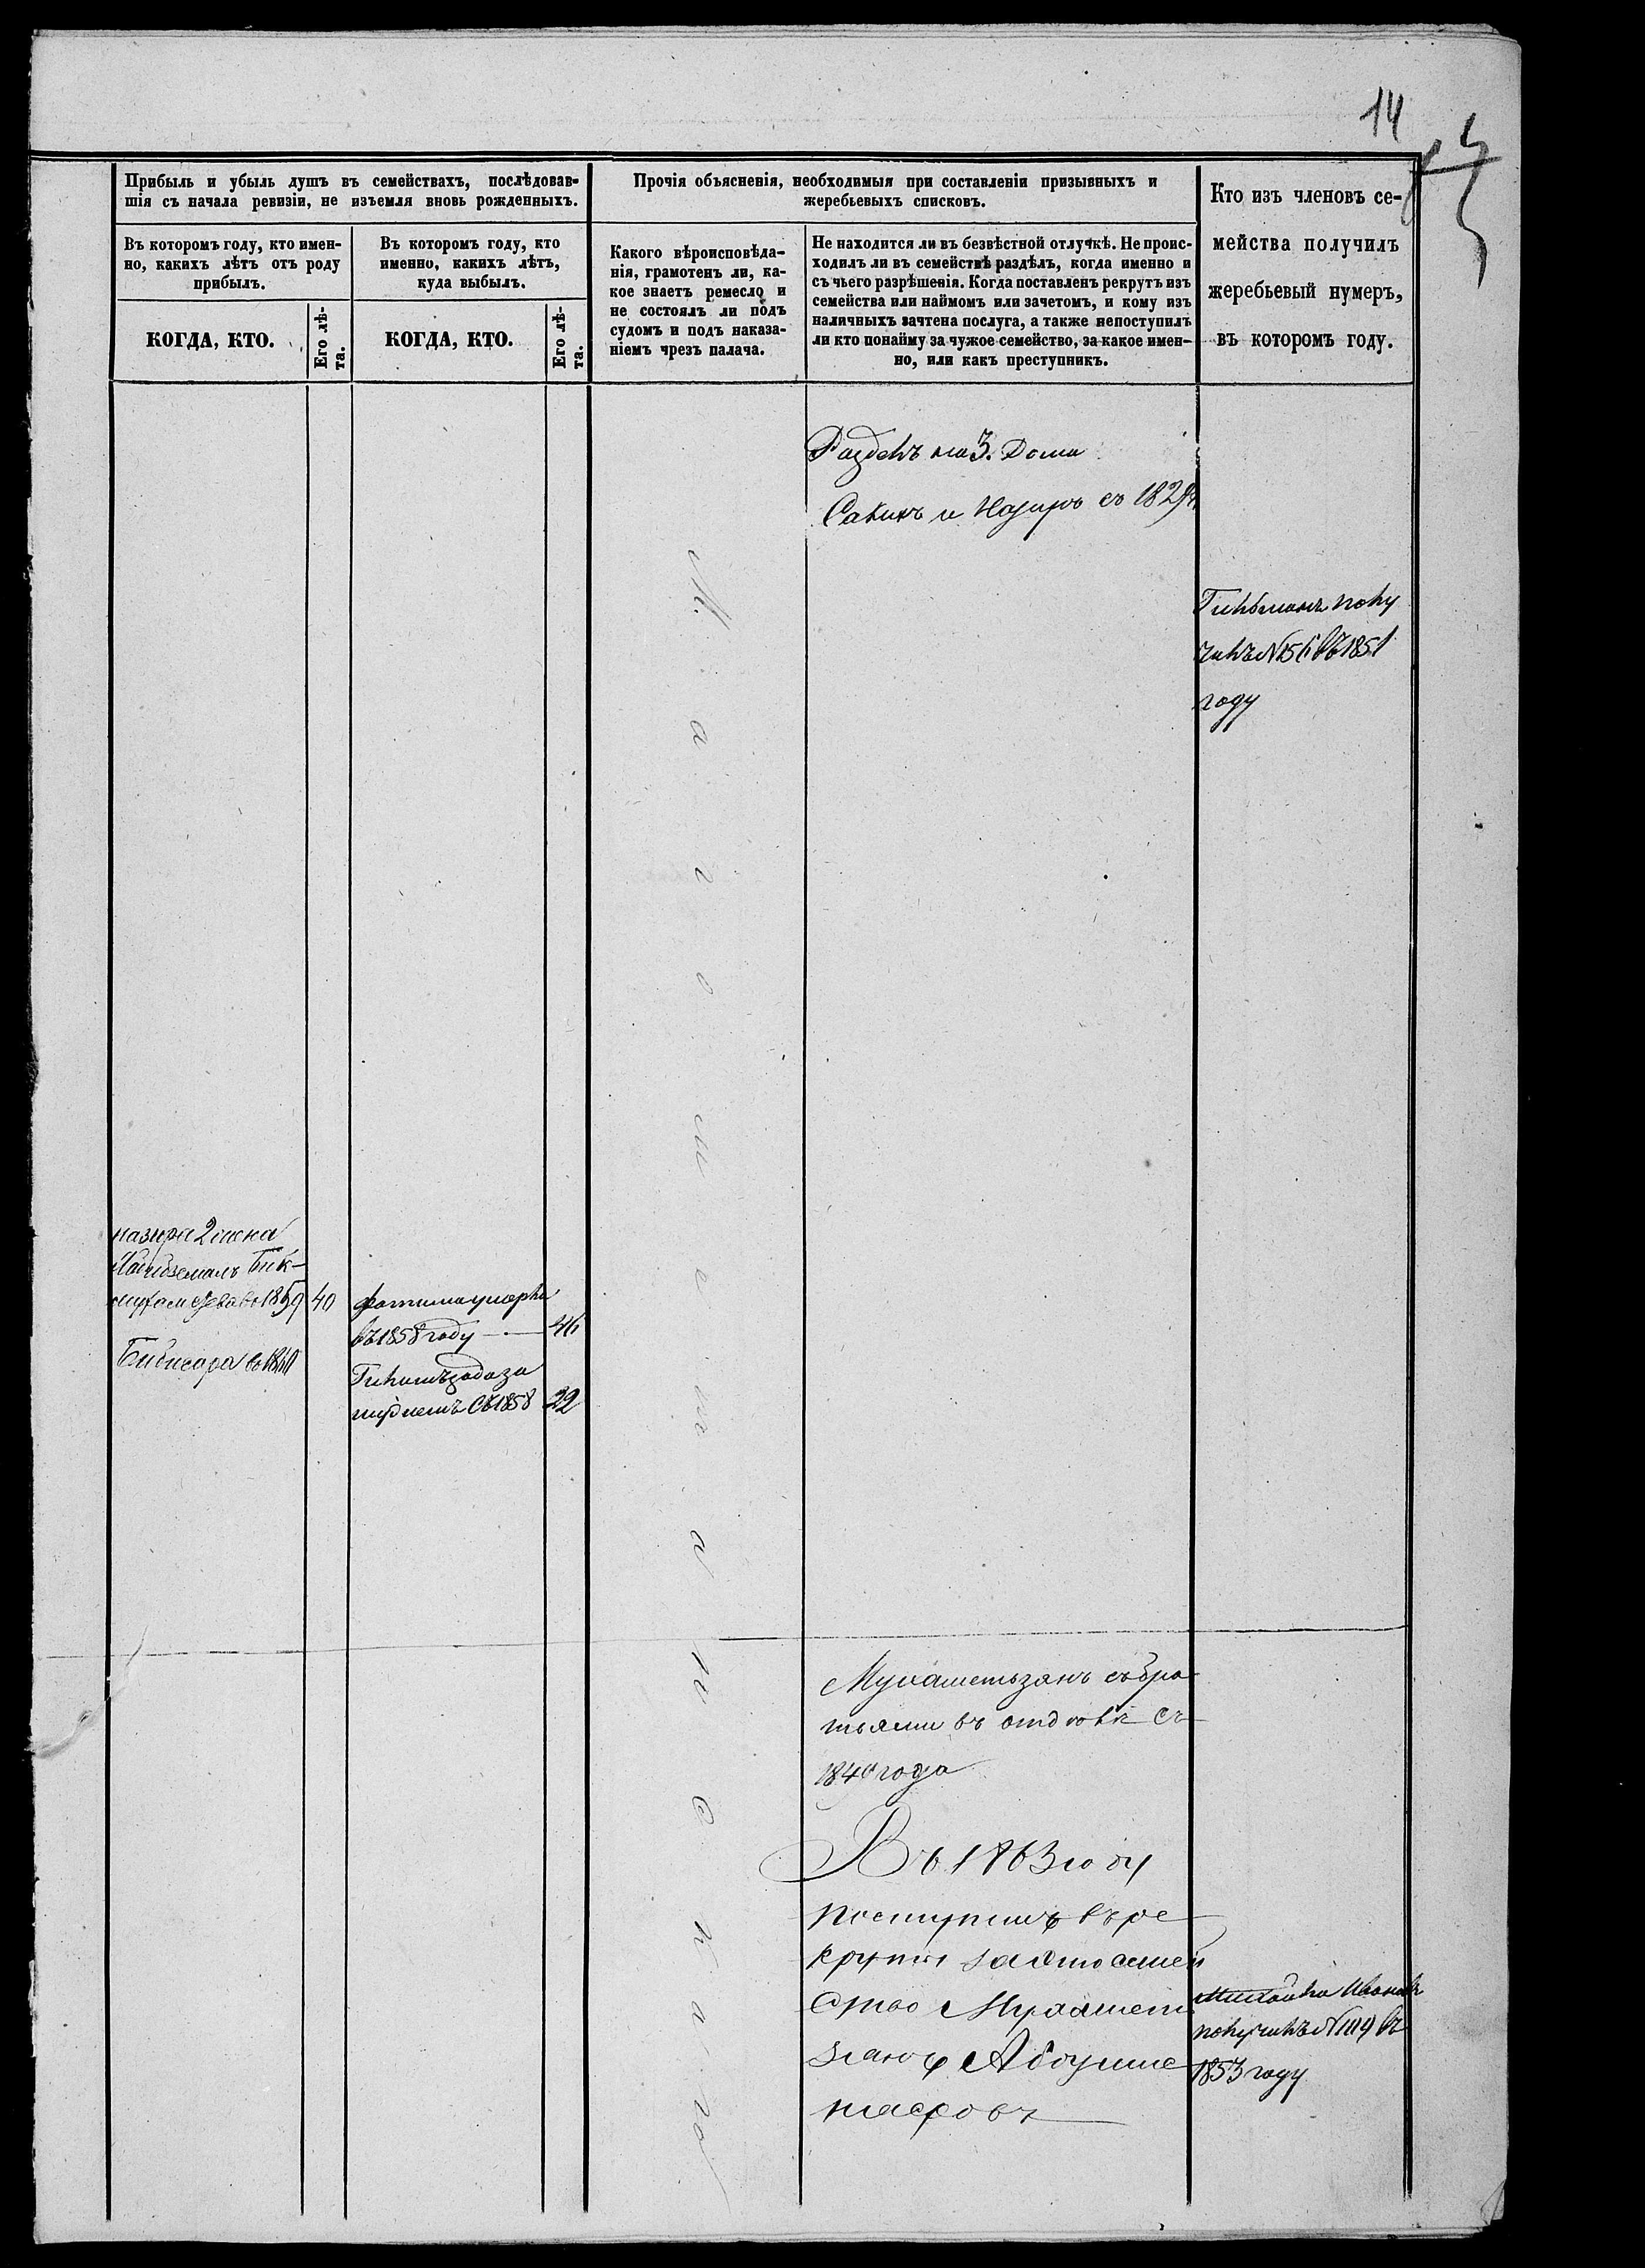 14
Прибыль и убыль душъ въ семействахъ, послѣдовав-
шія съ начала ревизіи, не изъемля вновь рожденныхъ.
Прочія объясненія, необходимыя при составленіи призывныхъ и
жеребьевыхъ списковъ.
Кто изъ членовъ се-
мейства получилъ
жеребьевый нумеръ,
въ которомъ году.
Въ которомъ году, кто имен-
но, какихъ лѣтъ отъ роду
прибылъ.
Въ которомъ году, кто
именно, какихъ лѣтъ,
куда выбылъ.
Какого вѣроисповѣда-
нія, грамотенъ ли, ка-
кое знаетъ ремесло и
не состоялъ ли подъ
судомъ и подъ наказа-
ніемъ чрезъ палача.
Не находится ли въ безвѣстной отлучкѣ. Не проис-
ходилъ ли въ семействѣ раздѣлъ, когда именно и
съ чьего разрѣшенія. Когда поставленъ рекрутъ изъ
семейства или наймомъ или зачетомъ, и кому изъ
наличныхъ зачтена послуга, а также непоступилъ
ли кто понайму за чужое семейство, за какое имен-
но, или какъ преступникъ.
КОГДА, КТО.
Его лѣ-
та.
КОГДА, КТО.
Его лѣ-
та.
Разделъ на 3. Дома
и Назиръ съ
полу
чилъ въ 1851
году
назира 2 жена
40
Бибисара
Фатима умерла
въ 1858 году 46
съ 1858 22
Магометанскаго
Мухаметьзянъ събра
тьями въ съ
1840 года
Въ 1863 году
поступилъ въ ре
круты за это семей
ство Мухамет
зянъ
получилъ № въ
1853 году